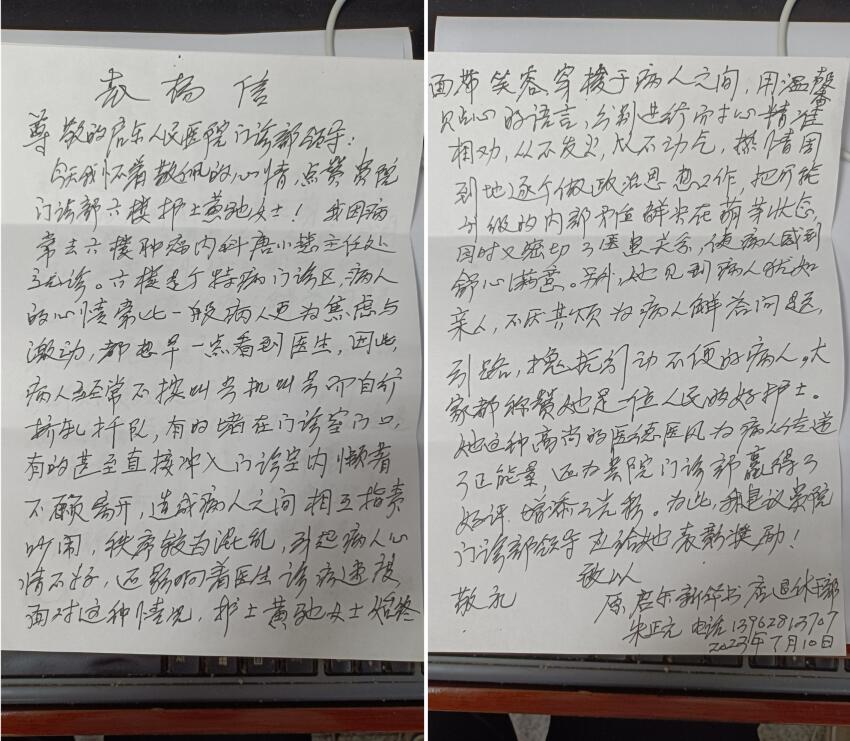 表扬信
尊敬的启东人民医院门诊部领导:
今天我怀着敬佩的心情点赞贵院
门诊部六楼护士黄驰女士! 我因病
常去六楼肿瘤内科唐小慧主任处
就诊。六楼是个特病门诊区,病人
的心情常比一般病人更为焦虑与
激动,都想早一点看到医生,因此,
病人经常不按叫号机叫号而自行
挤轧扦队,有的堵在门诊室门口,
有的甚至直接冲入门诊室内懒着
不愿离开,造成病人之间相互指责
吵闹,秩序较为混乱,引起病人心
情不好,还影响着医生诊病速度
面对这种情况,护士黄驰女士始终
面带笑容,穿梭于病人之间,用温馨
贴心的语言,分别进行耐心精准
相劝,从不发火,从不动气,热情周
到地逐个做政治思想工作,把可能
升级的内部矛盾解决在萌芽状态,
同时又密切了医患关系,使病人感到
舒心满意。另外,她见到病人犹如
亲人,不厌其烦为病人解答问题,
引路,搀扶行动不便的病人。大
家都称赞她是一位人民的好护士。
她这种高尚的医德医风为病人传递
了正能量,还为贵院门诊部赢得了
好评 增添了光彩。为此,我建议贵院
门诊部领导应给她表彰奖励!
致以
敬礼
原启东新华书店退休干部
朱正元 电话13962813707
2023年7月10日